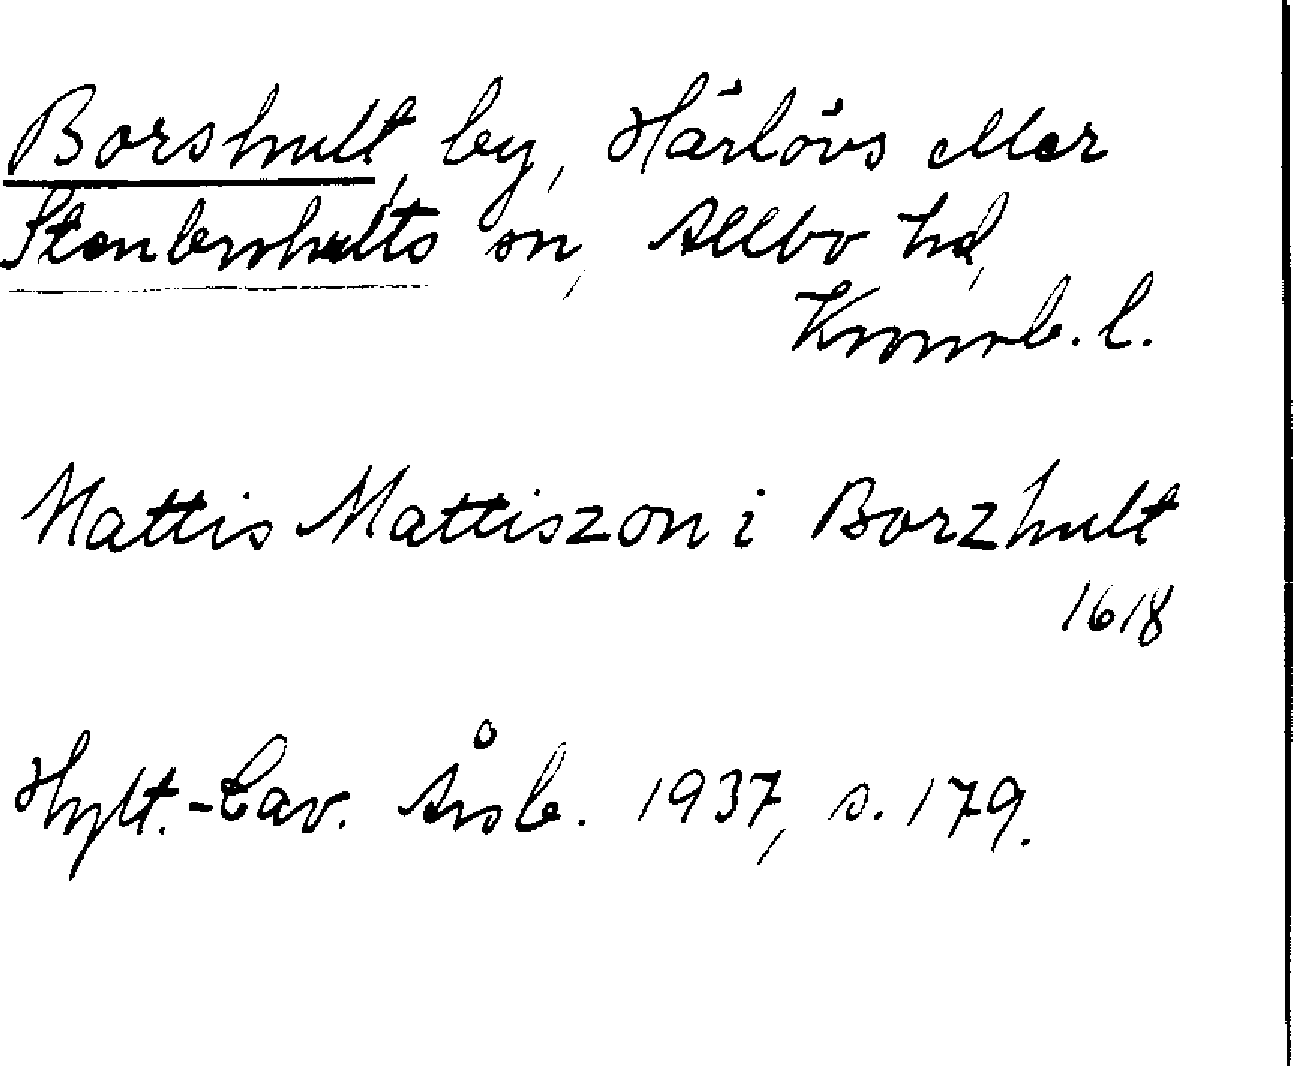 Borshult, by, Härlövs eller
Stenbrohults sn, Allbo hd,
Kronob. l.
Mattis Mattiszon i Borzhult
1618
Hylt.-Cav. Årsb. 1937, s. 179.